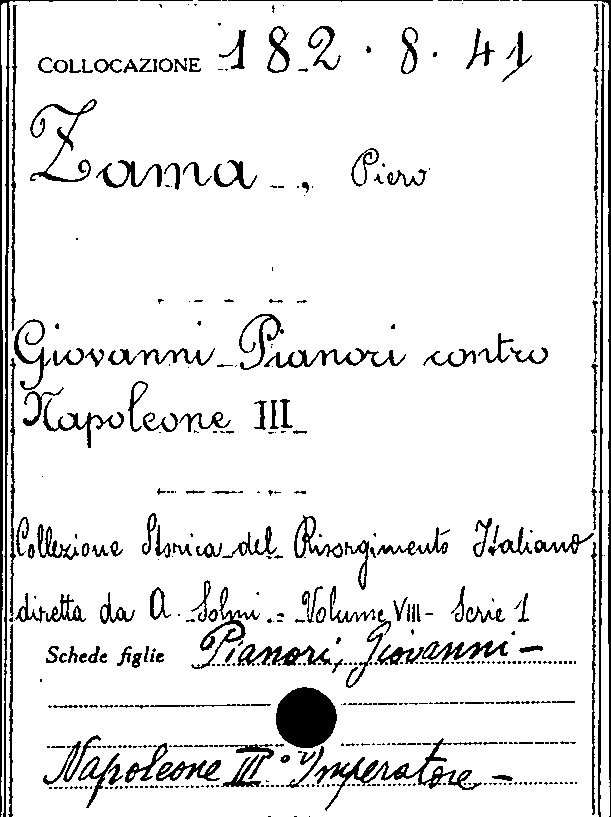 COLLOCAZIONE 182.8.41
Zama, Piero
Giovanni Pianori contro
Napoleone III
Collezione Storica del Risorgimento Italiano
diretta da A. Solmi. - Volume VIII - Serie 1
Schede figlie Pianori, Giovanni -
Napoleone III° Imperatore -